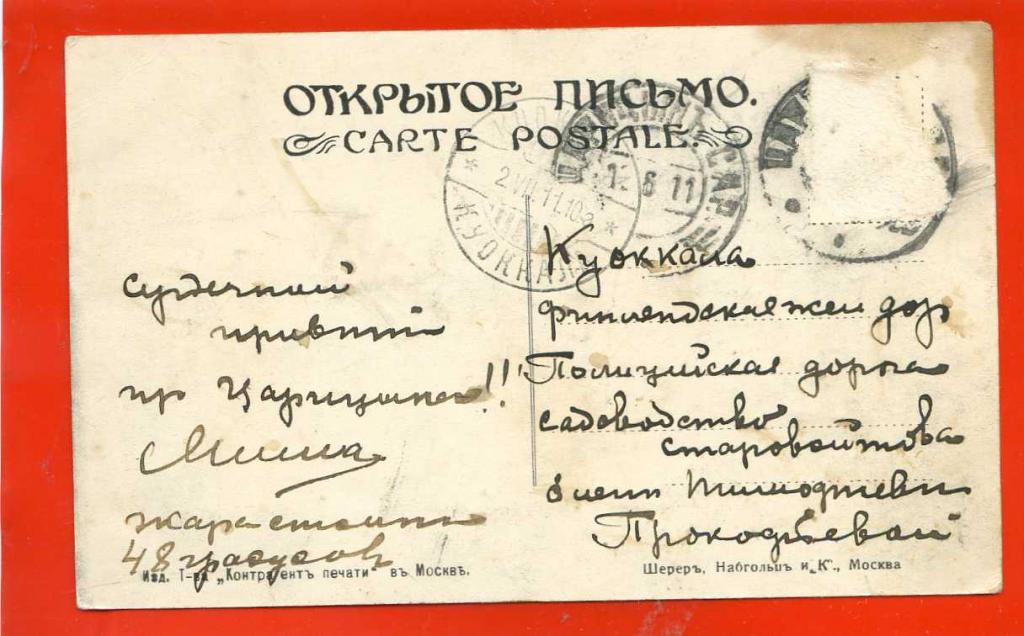 ОТКРЫТОЕ ПИСЬМО.
CARTE POSTALE.
2.VII.11.10
КУОККАЛА
1 6 11
ЦАР
сердечный
привет
пр Царицына!!
Миша
жара стоит
48 градусов
Куоккала
финлендская жел дор
Полицийская дорога
садоводство
старовойтова
Елени Тимофтеевн
Прокофьевой
Изд. Т-ва „Контрагентъ печати" въ Москвѣ.
Шереръ, Набгольцъ и „К°., Москва